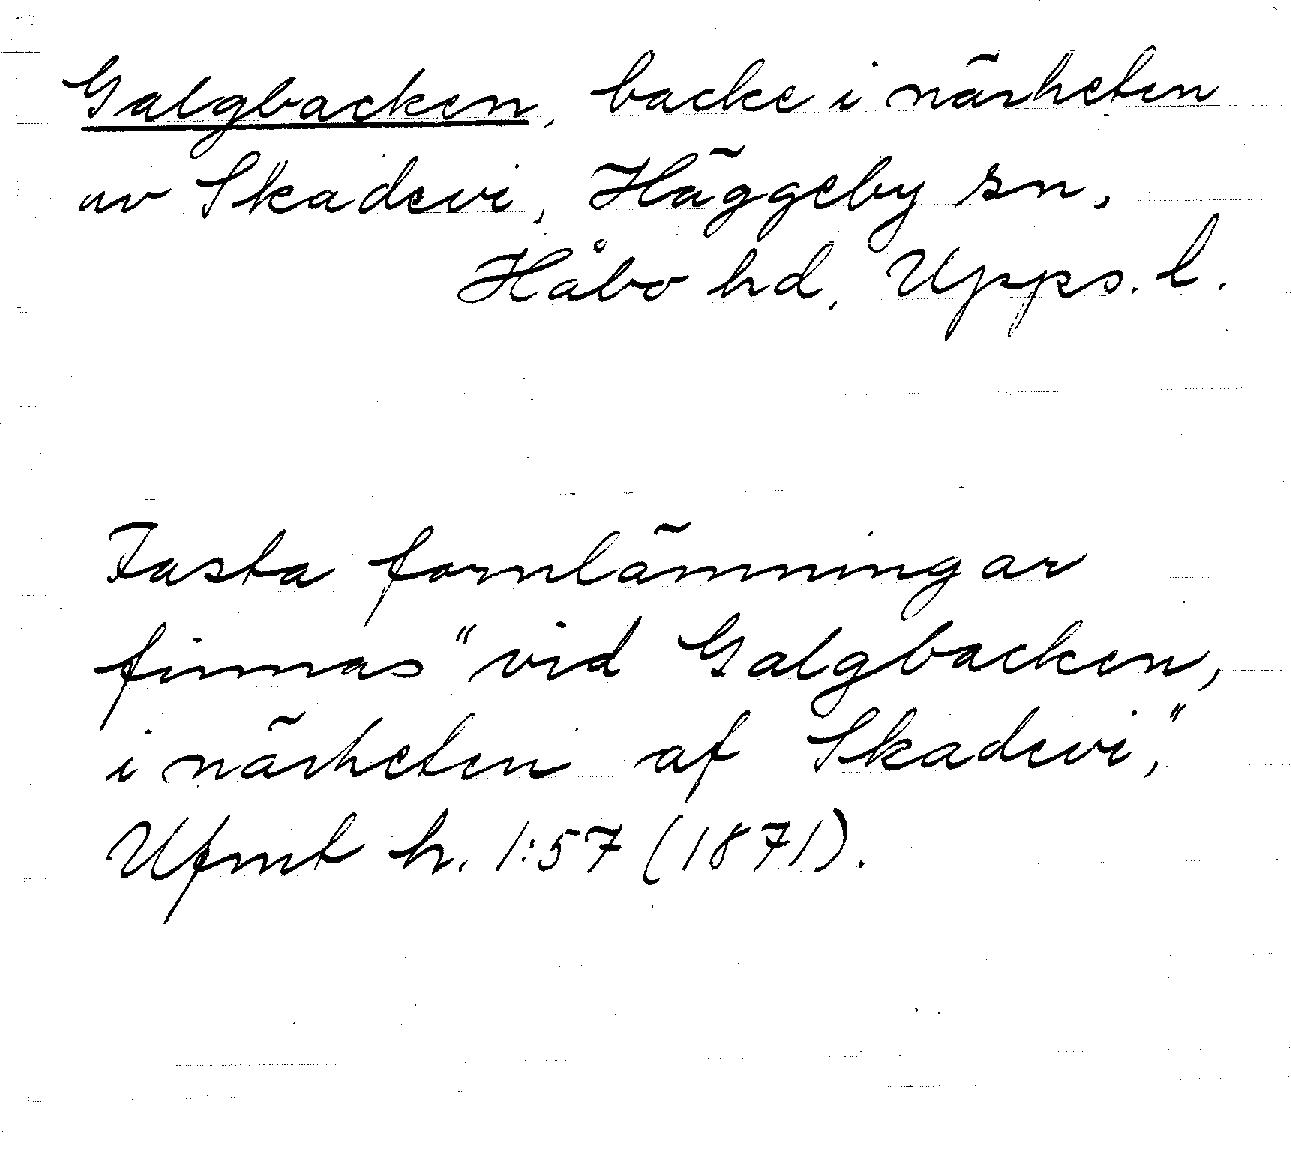 Galgbacken, backe i närheten
av Skadevi, Häggeby sn,
Håbo hd, Upps. l.
Fasta fornlämningar
finnas "vid Galgbacken,
i närheten af Skadevi,"
Ufmt h. 1:57 (1871).